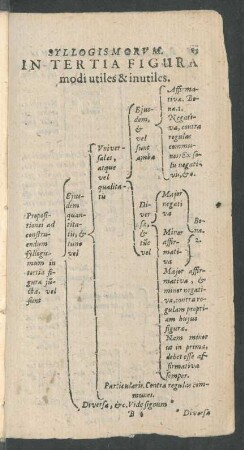 SYLLOGISMORVM.
IN TERTIA FIGURA
modi utiles & inutiles.
Propositiones ad
construendum
syllogismum in
tertia figura
sunt
Ejusdem
quantitatis, &
tunc
vel
Universales,
atque
vel
qualitatis
Ejusdem,
&
vel
sunt
ambæ
Affirmativæ. Bona.1.
Negativæ, contra
regulas
communes: Ex solis negativis, &c.
Diversæ,
&
tūc
vel
Major
negativa
Minor
affirmativa
Bona.
2.
Major affirmativa, &
minor negativa, contra regulam propriam hujus
figuræ.
Nam minor
ut in prima,
debet esse affirmativa
semper.
Particulares. Contra regulas communes.
Diversæ, &c. Vide signum *
B
* Diversæ